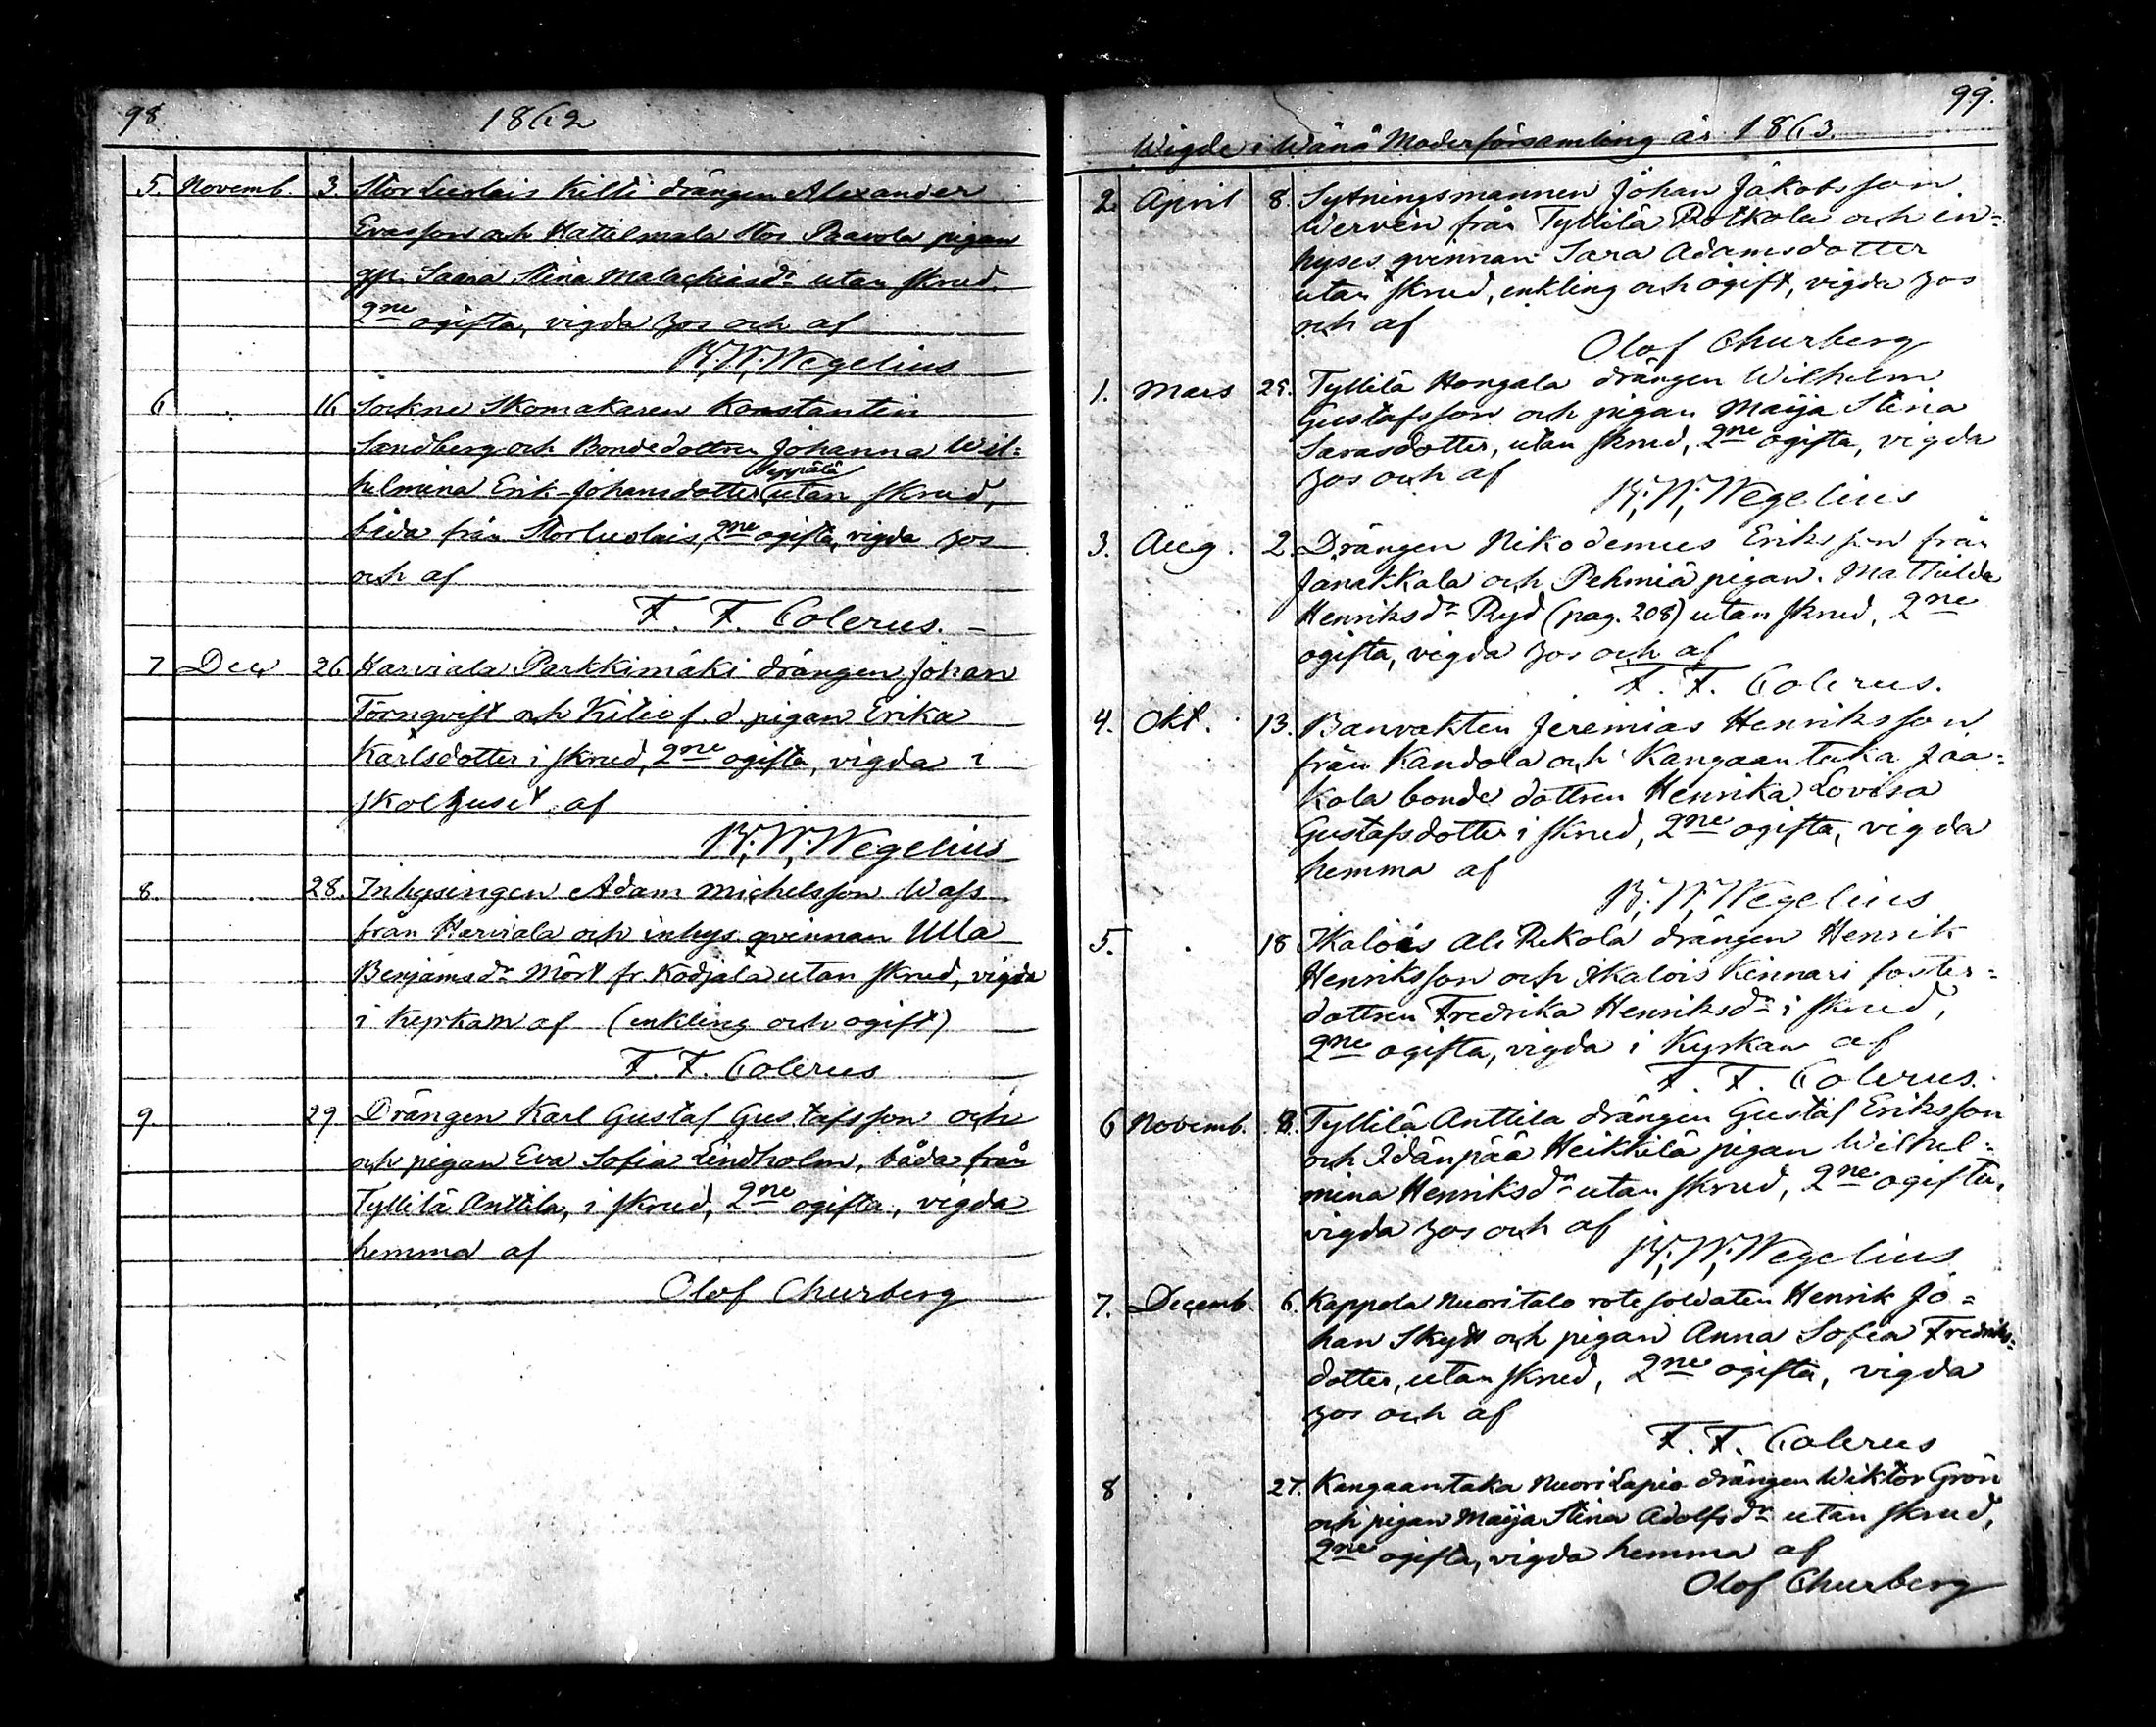 98
1862
5. Novemb. 3. Stor Luolais Kilti drängen Alexander
Evasson och Hattelmala Stor Paavola pigan
Saara Stina Malachiasdr utan skrud,
2ne ogifta, vigda hos och af
K. W. Wegelius
6 . 16 Sockne Skomakaren Konstantin
Sandberg och Bondedottren Johanna Wil-
Seppälä
helmina Erik-Johansdotter utan skrud,
båda från Storluolais, 2ne ogifta, vigda hos
och af
F. F. Colerus.
7 Dec 26 Harviala Parkkimäki drängen Johan
Törnqvist och Kitiö f. d. pigan Erika
Karlsdotter i skrud, 2ne ogifta, vigda i
skolhuset af
K. W. Wegelius
8. . 28. Inhysingen Adam Michelsson Wass
från Harviala och inhys. qvinnan Ulla
Benjamsdr Mört fr. Kodjala utan skrud, vigda
i Kyrkan af (enkling och ogift)
F. F. Colerus
9. . 29 Drängen Karl Gustaf Gustafsson och
och pigan Eva Sofia Lindholm, båda från
Tyllilä Anttila, i skrud, 2ne ogifta, vigda
hemma af
Olof Churberg
99.
Wigde i Wånå Moderförsamling år 1863.
2. April 8. Sytningsmannen Johan Jakobsson
Wervén från Tyllilä Rotkola och in-
hyses qvinnan Sara Adamsdotter
utan skrud, enkling och ogift, vigda hos
och af
Olof Churberg
1. Mars 29. Tyllilä Hongala drängen Wilhelm
Gustafsson och pigan Maija Stina
Sarasdotter, utan skrud, 2ne ogifta, vigda
hos och af
K. W. Wegelius
3. Aug. 2. Drängen Nikodemus Eriksson från
Janakkala och Pehmiä pigan Mathilda
Henriksdr Ryd (pag. 208) utan skrud, 2ne
ogifta, vigda hos och af
F. F. Colerus.
4. Okt. 13. Banvakten Jeremias Henriksson
från Kandola och Kangaantaka Jaa-
kola bonde dottren Henrika Lovisa
Gustafsdotter i skrud, 2ne ogifta, vigda
hemma af
K. W. Wegelius
5. . 18 Ikalois Ali Rekola drängen Henrik
Henriksson och Ikalois Kinnari foster-
dottren Fredrika Henriksdr i skrud,
2ne ogifta, vigda i Kyrkan af
F. F. Colerus.
6 Novemb. 8. Tyllilä Anttila drängen Gustaf Eriksson
och Idänpää Heikkilä pigan Wilhel-
mina Henriksdr utan skrud, 2ne ogifta,
vigda hos och af
K. W. Wegelius
7. Decemb. 6. Kappola Nuoritalo rotesoldaten Henrik Jo-
han Skytt och pigan Anna Sofia Fredriks-
dotter, utan skrud, 2ne ogifta, vigda
hos och af
F. F. Colerus
8 . 27. Kangaantaka Nuori Lapio drängen Wiktor Grön
och pigan Maija Stina Adolfsdr utan skrud,
2ne ogifta, vigda hemma af
Olof Churberg